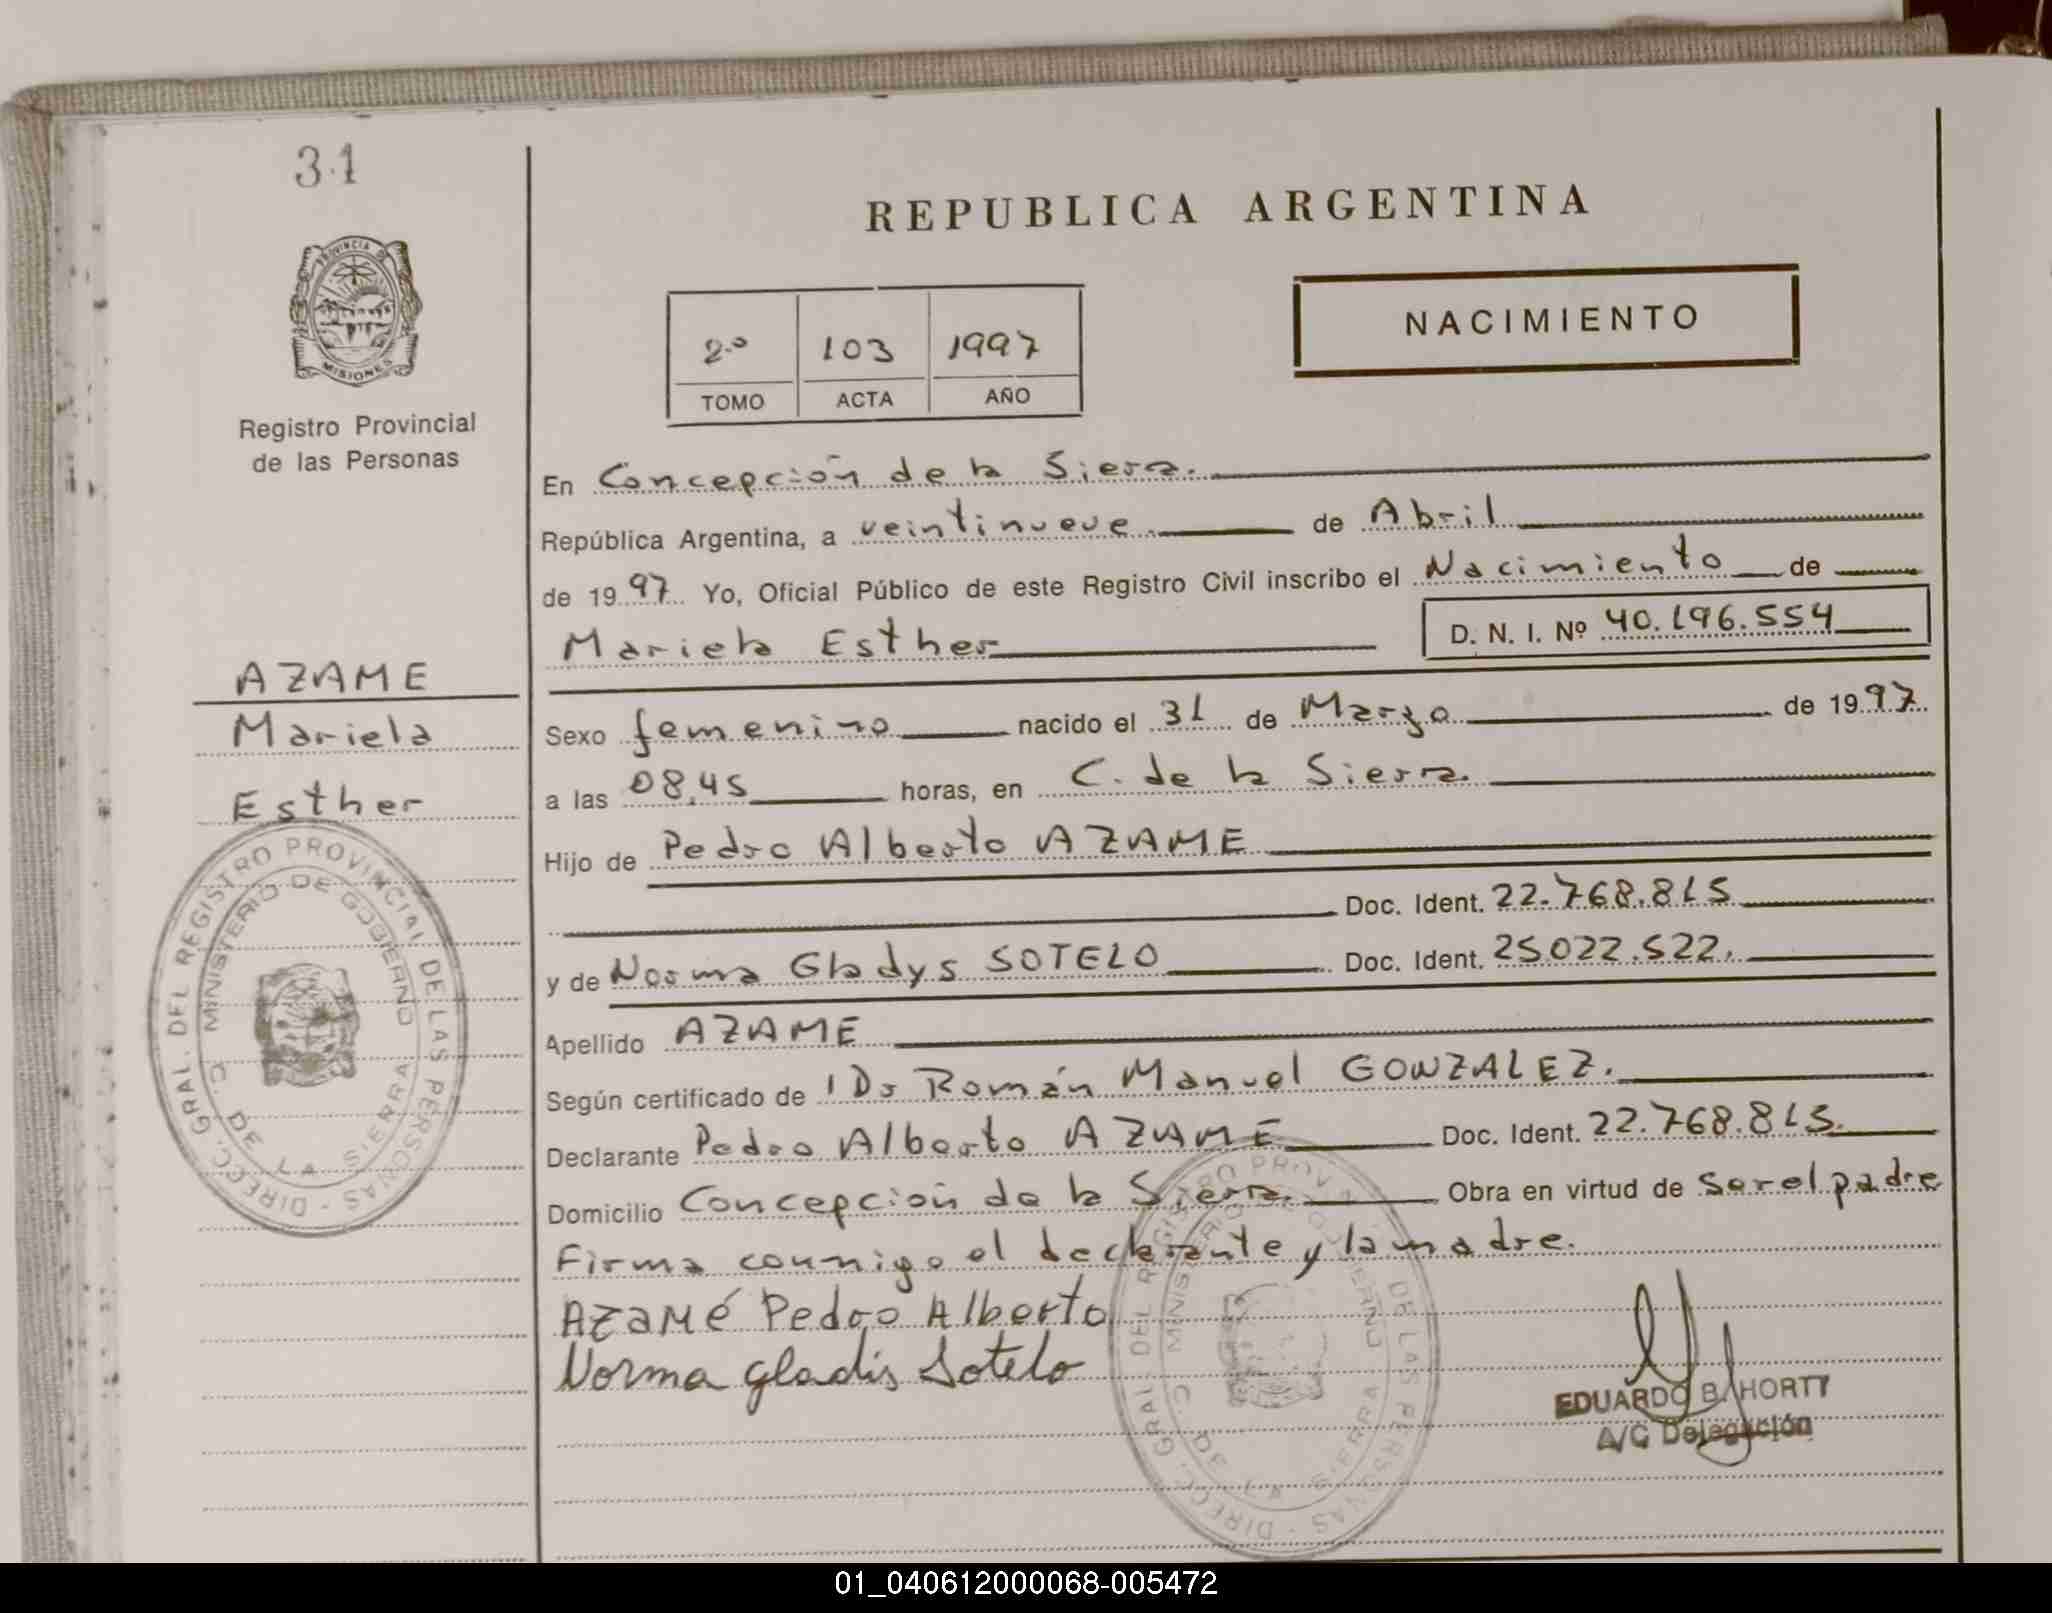 31
PROVINCIA DE
MISIONES
Registro Provincial
de las Personas
AZAME
Mariela
Esther
DIREC. GRAL. DEL REGISTRO PROVINCIAL DE LAS PERSONAS -
MINISTERIO DE GOBIERNO
C. DE LA SIERRA
REPUBLICA ARGENTINA
2.º 103 1997
TOMO ACTA AÑO
NACIMIENTO
En Concepción de la Sierra.
República Argentina, a veintinueve de Abril
de 1997 Yo, Oficial Público de este Registro Civil inscribo el Nacimiento de
Mariela Esther D. N. I. Nº 40.196.554
Sexo femenino nacido el 31 de Marzo de 1997
a las 08,45 horas, en C. de la Sierra.
Hijo de Pedro Alberto AZAME
Doc. Ident. 22.768.815
y de Norma Gladys SOTELO Doc. Ident. 25.022.522.
Apellido AZAME
Según certificado de 1 Dr Román Manuel GONZALEZ.
Declarante Pedro Alberto AZAME Doc. Ident. 22.768.815.
Domicilio Concepción de la Sierra. Obra en virtud de ser el padre
Firma conmigo el declarante y la madre.
AZAMÉ Pedro Alberto
Norma gladis Sotelo
DIREC. GRAL. DEL REGISTRO PROVINCIAL DE LAS PERSONAS -
MINISTERIO DE GOBIERNO
C. DE LA SIERRA
EDUARDO B. HORTT
A/C Delegación
01_040612000068-005472